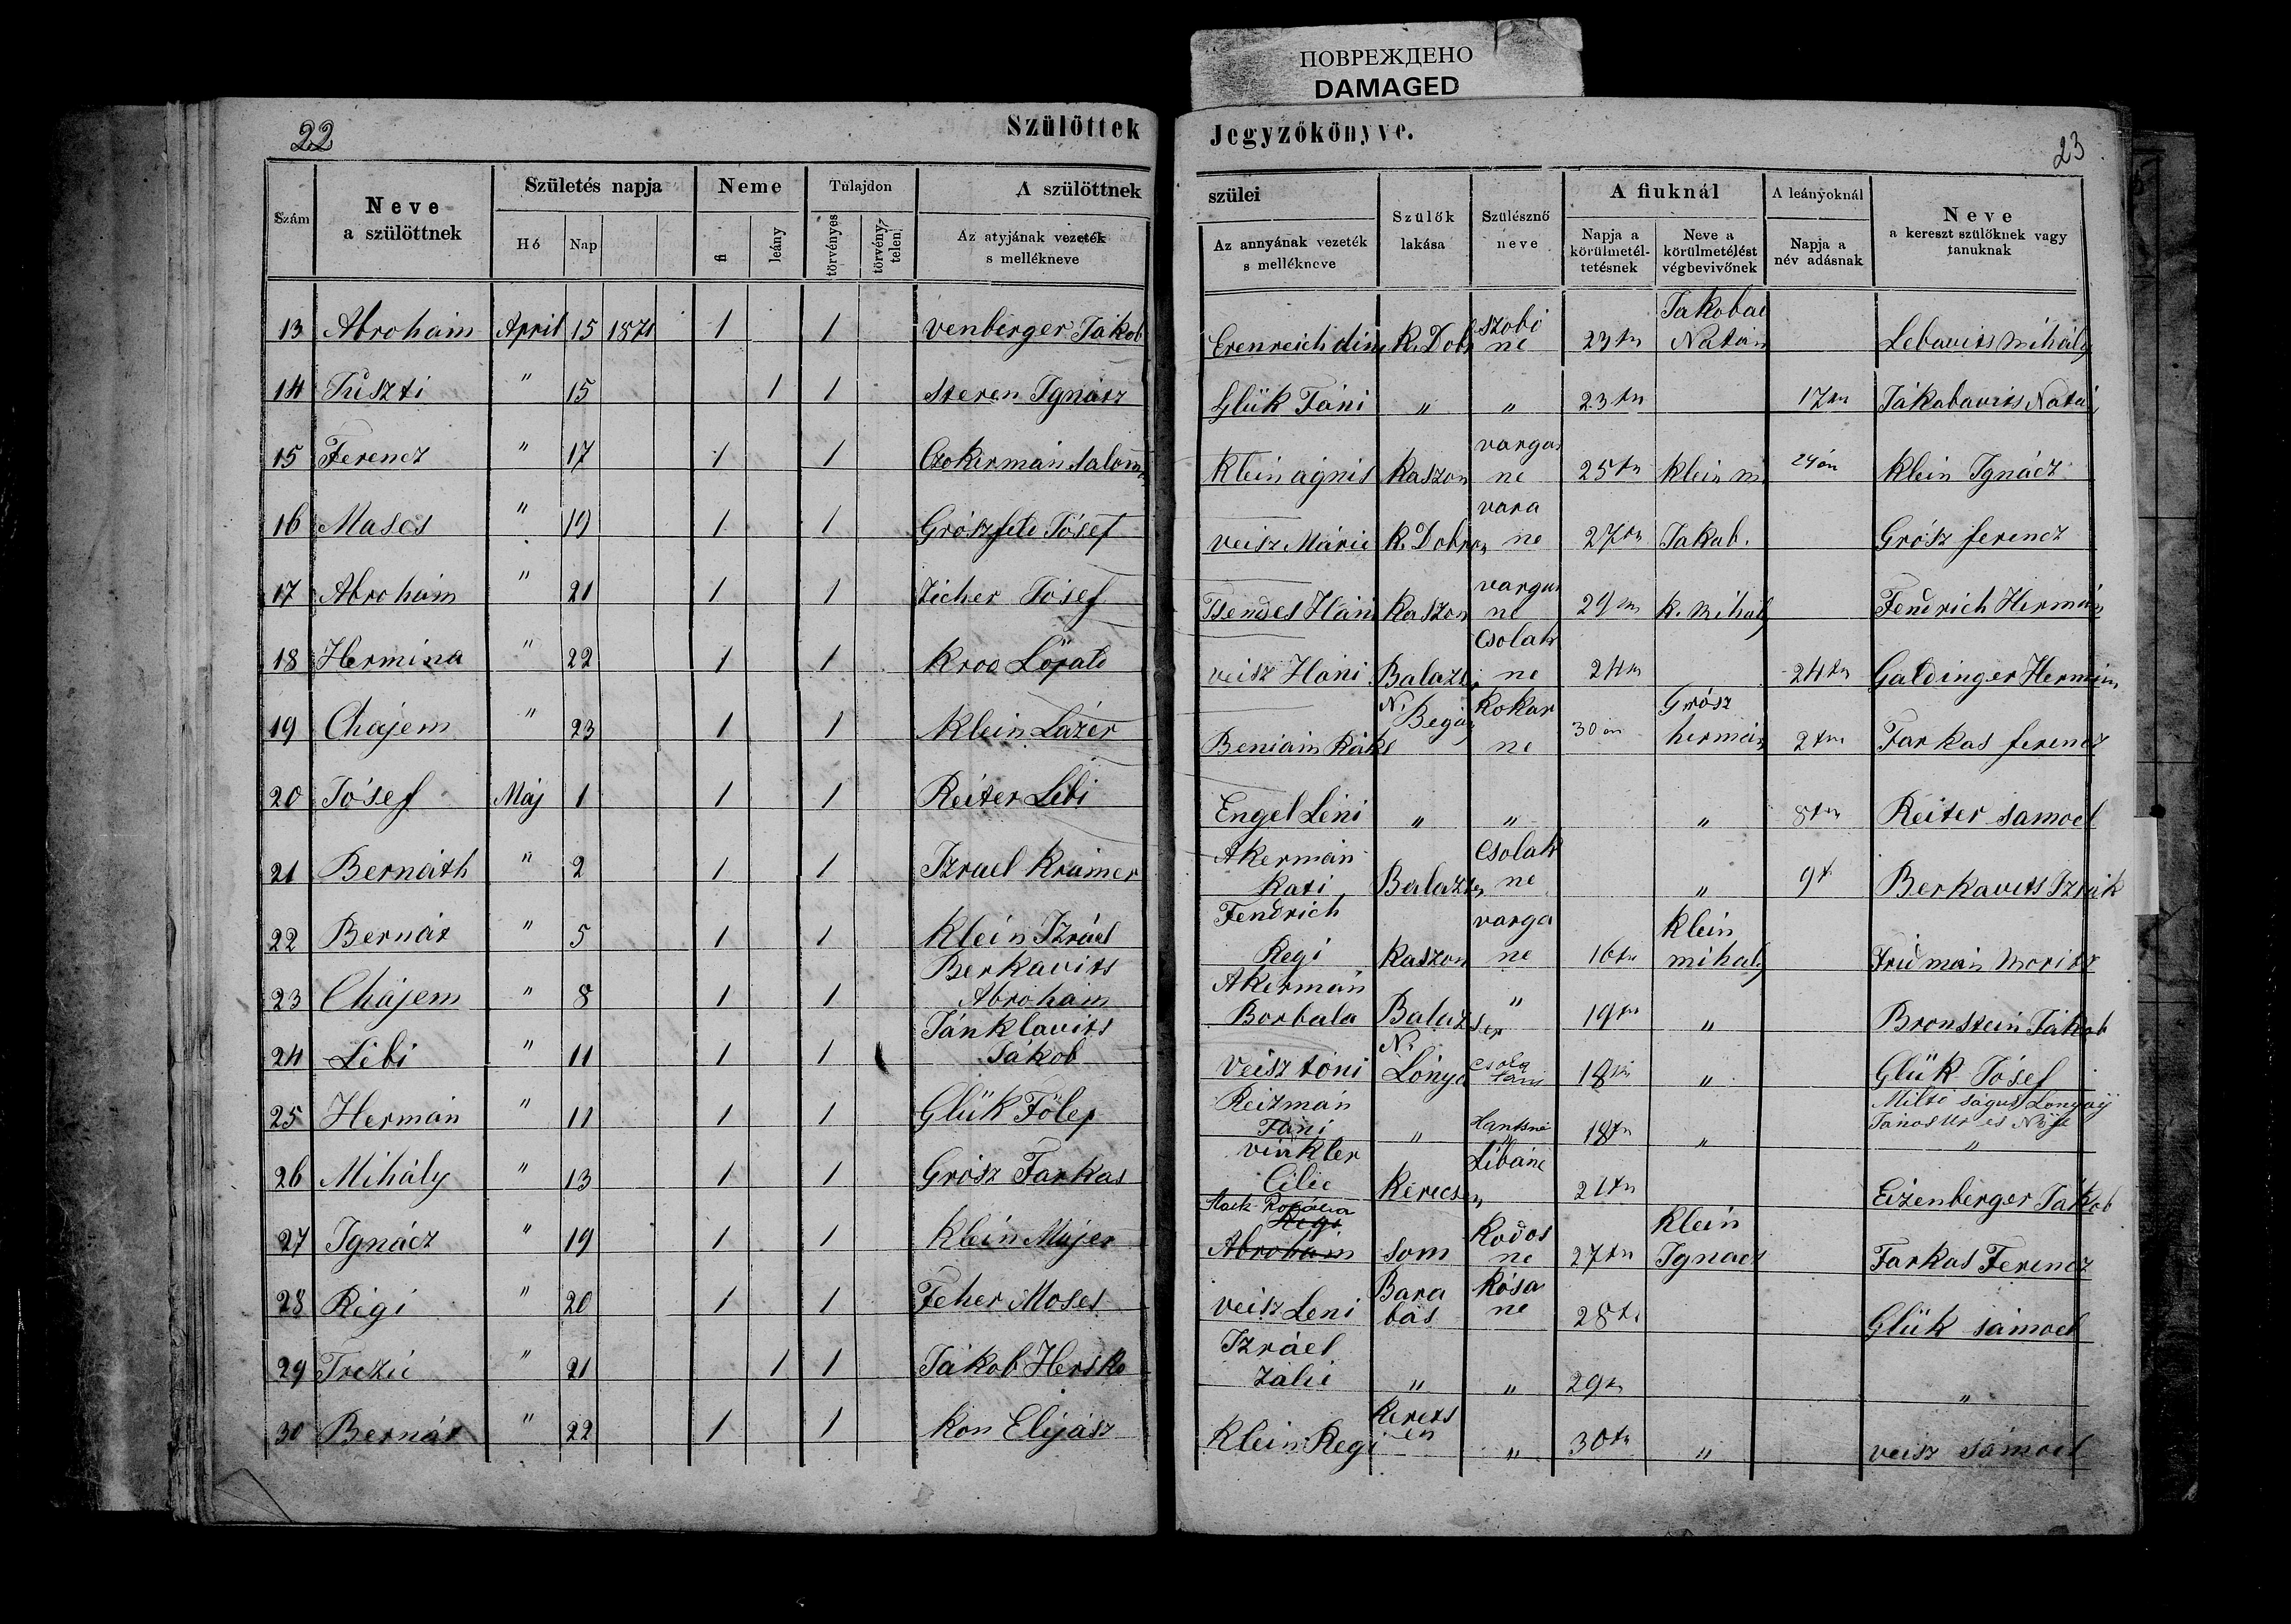 ПОВРЕЖДЕНО
DAMAGED
22
Szülöttek
Jegyzőkönyve.
23
Szám
Neve
a szülöttnek
Születés napja
Hó
Nap
Neme
fi
leány
Tulajdon
törvényes
törvény-
telen
A szülöttnek
Az atyjának vezeték
s mellékneve
szülei
Az annyának vezeték
s mellékneve
Szülők
lakása
Szülésznő
neve
A fiuknál
Napja a
körülmetél-
tetésnek
Neve a
körülmetélést
végbevivőnek
A leányoknál
Napja a
név adásnak
Neve
a kereszt szülőknek vagy
tanuknak
13 Abrohám April 15 1871 1 1 venberger Jákob
Erenreich K. Dob szobo ne 23tn Jakobav Natán Lebavits Mihály
14 " 15 1 1 Steren Ignátz
Glük Fáni " " 23tn 17tn Jákabavits Natá
15 Ferencz " 17 1 1 Czokermán Salom
Klein agnis Kaszon vargas ne 25tn Klein m 24én Klein Ignácz
16 Moses " 19 1 1 Grószfeld Jósef
veisz Mária K. Dobron vara ne 27tn Jakab. Grósz ferencz
17 Abrohám " 21 1 1 Zicher Jósef
Bendes Háni Kaszon vargas ne 29tn K. mihaly Fendrich Hermán
18 Hermina " 22 1 1 Kroo Lörato
veisz Háni Balazs Csolak ne 24tn 24tn Galdinger Hermin
19 Chájem " 23 1 1 Klein Lázér
Beniám Ráke N. Begán Kokar ne 30án Grósz hermán 2tn Farkas ferencz
20 Jósef Máj 1 1 1 Reiter Libi
Engel Léni " " " 8tn Reiter samoel
21 Bernáth " 2 1 1 Izrael Krámer
Akermán Kati Balazs Csolak ne " 9t Berkavits Izsák
22 Bernát " 5 1 1 Klein Izráel
Fendrich Regi Kaszon varga ne 16tn Klein mihaly Fridmán Moritz
23 Chájem " 8 1 1 Berkavits Abrohám
Akermán Borbala Balazser " 19tn " Bronstein Jákob
24 Libi " 11 1 1 Jánklavits Jákob
Veisz tóni N. Lónya 18tn " Glük Jósef
25 Hermán " 11 1 1 Glük Fölep
Reizmán Fáni " 18tn " Lonyay János Ur és Neje
"
26 Mihály " 13 1 1 Grósz Farkas
vinkler Cilie Kerecsen Libáne 21tn Eizenberger Jákob
27 Ignácz " 19 1 1 Klein Májer
Rozália Regi Abrohám Som Kodos ne 27tn Klein Ignacz Farkas Ferencz
28 Régi " 20 1 1 Feher Moses
veisz Leni Bara bás Rósa ne 28tn Glük sámoel
29 Trézie " 21 1 1 Jákob Hersko
Izráel Záli " " 29tn "
30 Bernát " 22 1 1 Kon Elijász
Klein Regi Kerets en " 30tn " veisz sámoel